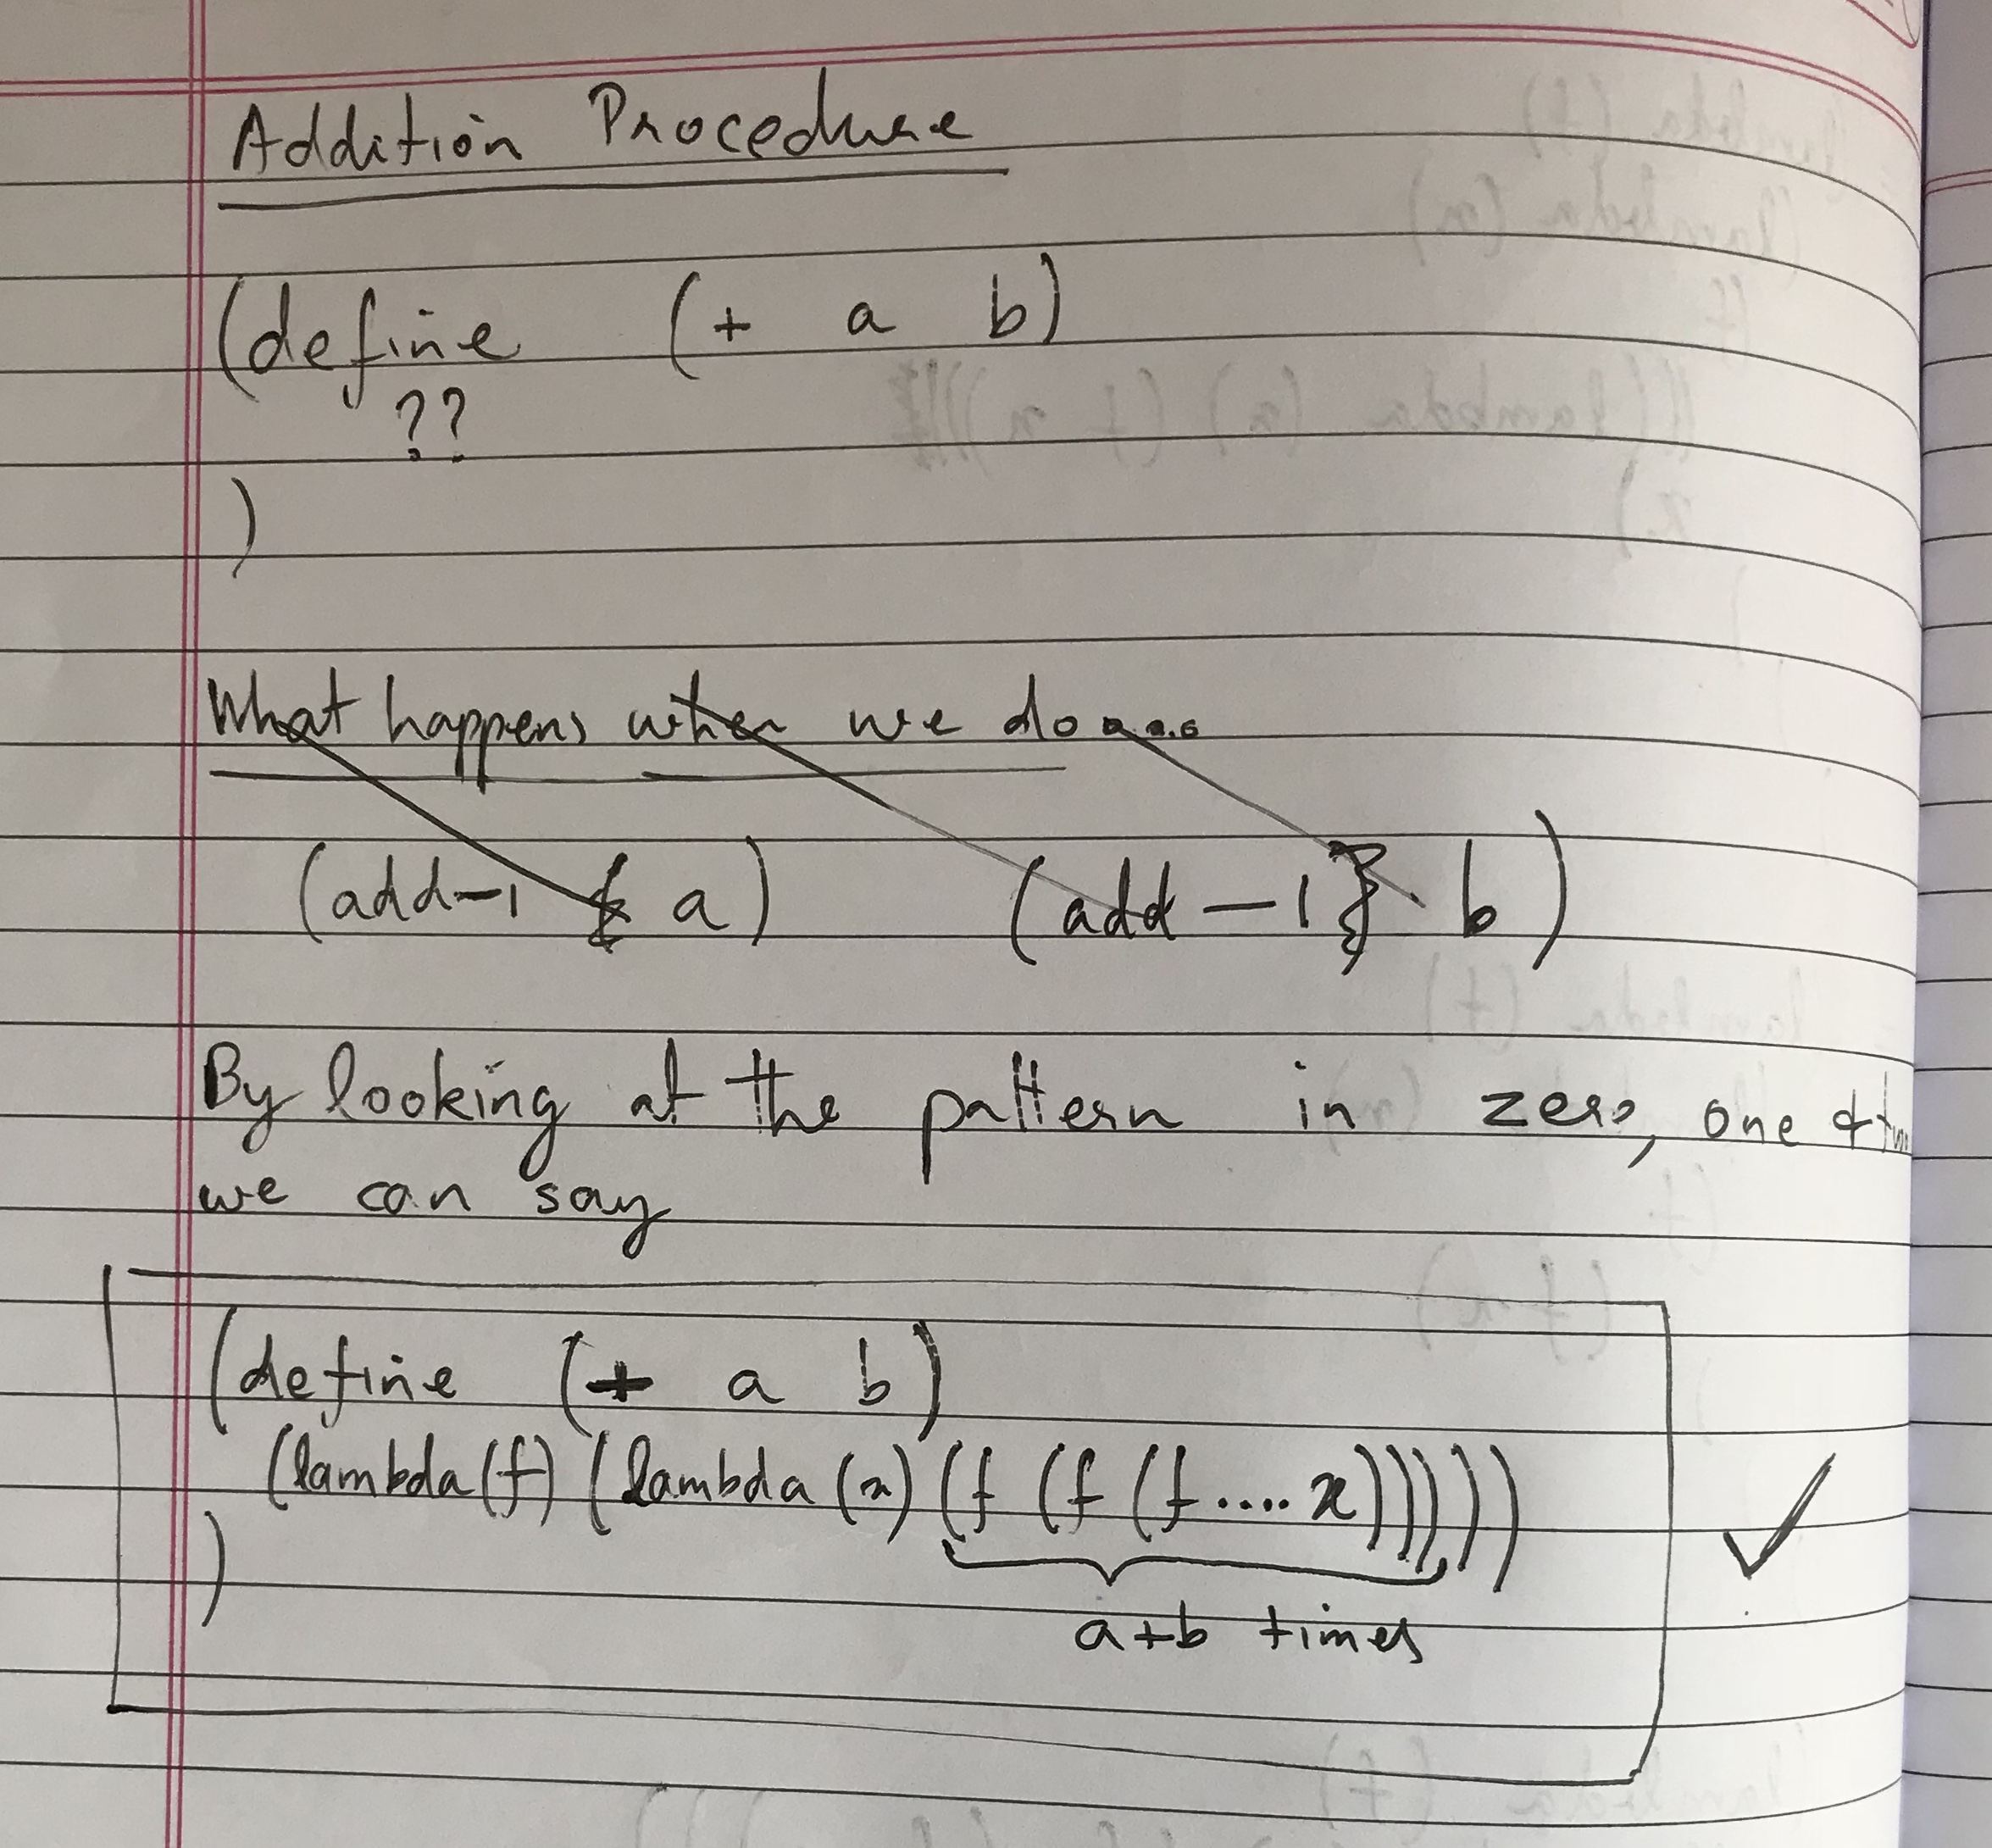 Addition Procedure
(define (+ a b)
??
)
What happens when we do ....
(add-1 a) (add-1 b)
By looking at the pattern in zero, one &
we can say
(define (+ a b)
(lambda (f) (lambda (x) (f (f (f .... x)))))
)
a+b times